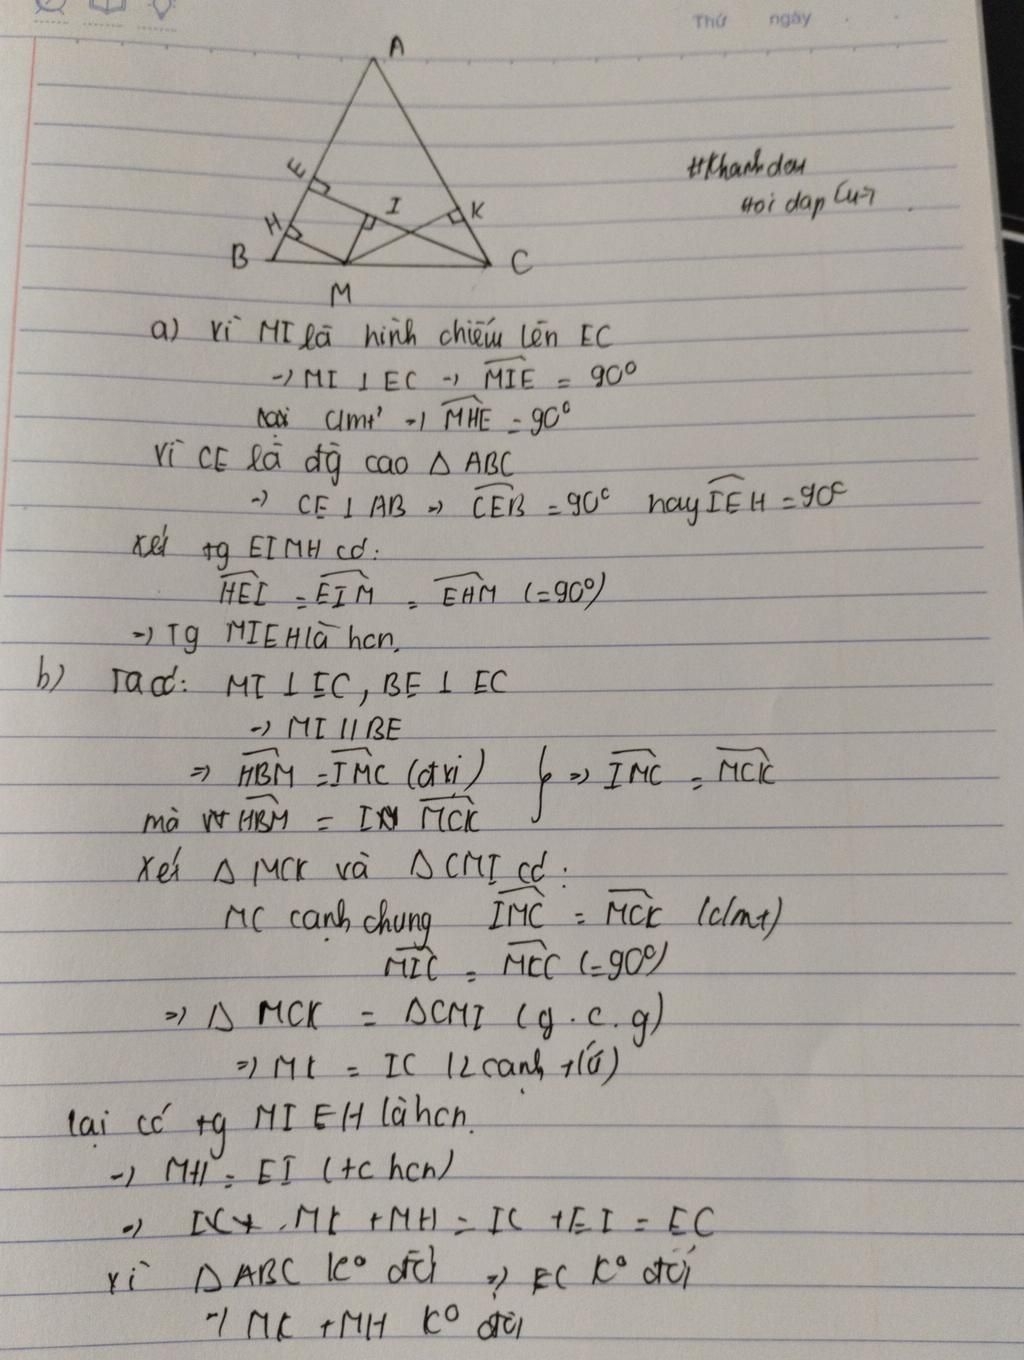 Thứ ngày
A
#Khanhdom
Hoi dap
E
I
K
H
B
C
M
a) Vì MI là hình chiếu lên EC
→ MI ⊥ EC → MIE = 90°
→ MHE = 90°
Vì CE là đg cao Δ ABC
→ CE ⊥ AB → CEB = 90° hay IEH = 90°
Xét tg EIMH có:
HEI = EIM = EHM (=90°)
→ Tg MIEH là hcn.
b) Ta có: MI ⊥ EC, BE ⊥ EC
→ MI // BE
⇒ HBM = IMC (đ vị) } ⇒ IMC = MCK
mà HBM = MCK
Xét Δ MCK và Δ CMI có:
MC cạnh chung IMC = MCK (c/mt)
MIC = MKC (=90°)
⇒ Δ MCK = Δ CMI (g.c.g)
⇒ MK = IC (2 cạnh t/ứ)
Lại có tg MIEH là hcn.
→ MH = EI (t/c hcn)
⇒ MK + MH = IC + EI = EC
Vì Δ ABC k° đổi ⇒ EC k° đổi
⇒ MK + MH k° đổi